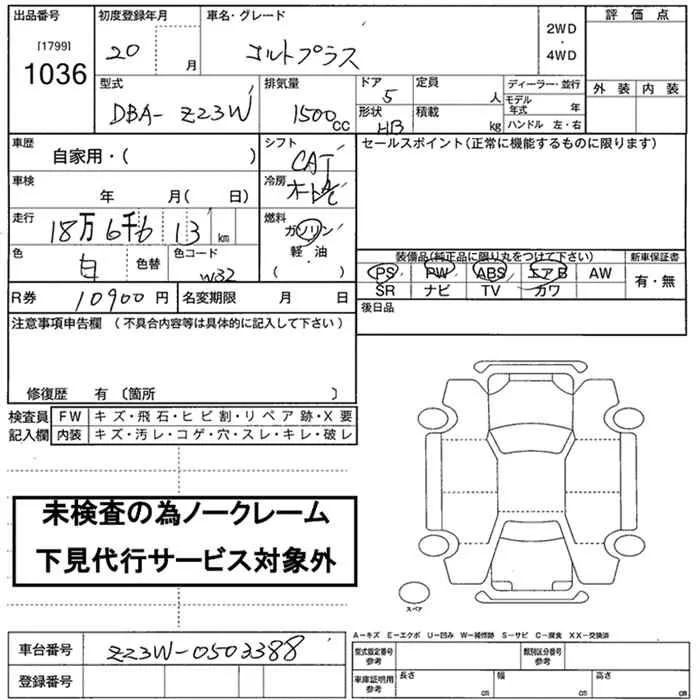 出品番号 初度登録年月 車名・グレード 2WD・4WD 評価点
[1799]
1036 20 月 コルトプラス
外装 内装
型式 排気量 ドア 定員 ディーラー・並行
DBA- Z23W 1500cc 5 人 モデル年式 年
形状 積載 ハンドル 左・右
HB kg
車歴 自家用・( ) シフト CAT セールスポイント(正常に機能するものに限ります)
車検 年 月( 日) 冷房 オートAC
走行 18万 6千 6 13 km 燃料 ガソリン
軽・油
( )
色 白 色替 色コード W32
装備品(純正品に限り丸をつけて下さい) 新車保証書
PS PW ABS エアB AW 有・無
SR ナビ TV カワ
R券 10900円 名変期限 月 日
後日品
注意事項申告欄 (不具合内容等は具体的に記入して下さい)
修復歴 有 〔箇所 〕
検査員 FW キズ・飛石・ヒビ割・リペア跡・X要
記入欄 内装 キズ・汚レ・コゲ・穴・スレ・キレ・破レ
未検査の為ノークレーム
下見代行サービス対象外
スペア
A-キズ E-エクボ U-凹み W-補修跡 S-サビ C-腐食 XX-交換済
車台番号 ZZ3W-0503388
型式指定番号 参考 類別区分番号 参考
登録番号
車庫証明用 参考 長さ cm 幅 cm 高さ cm